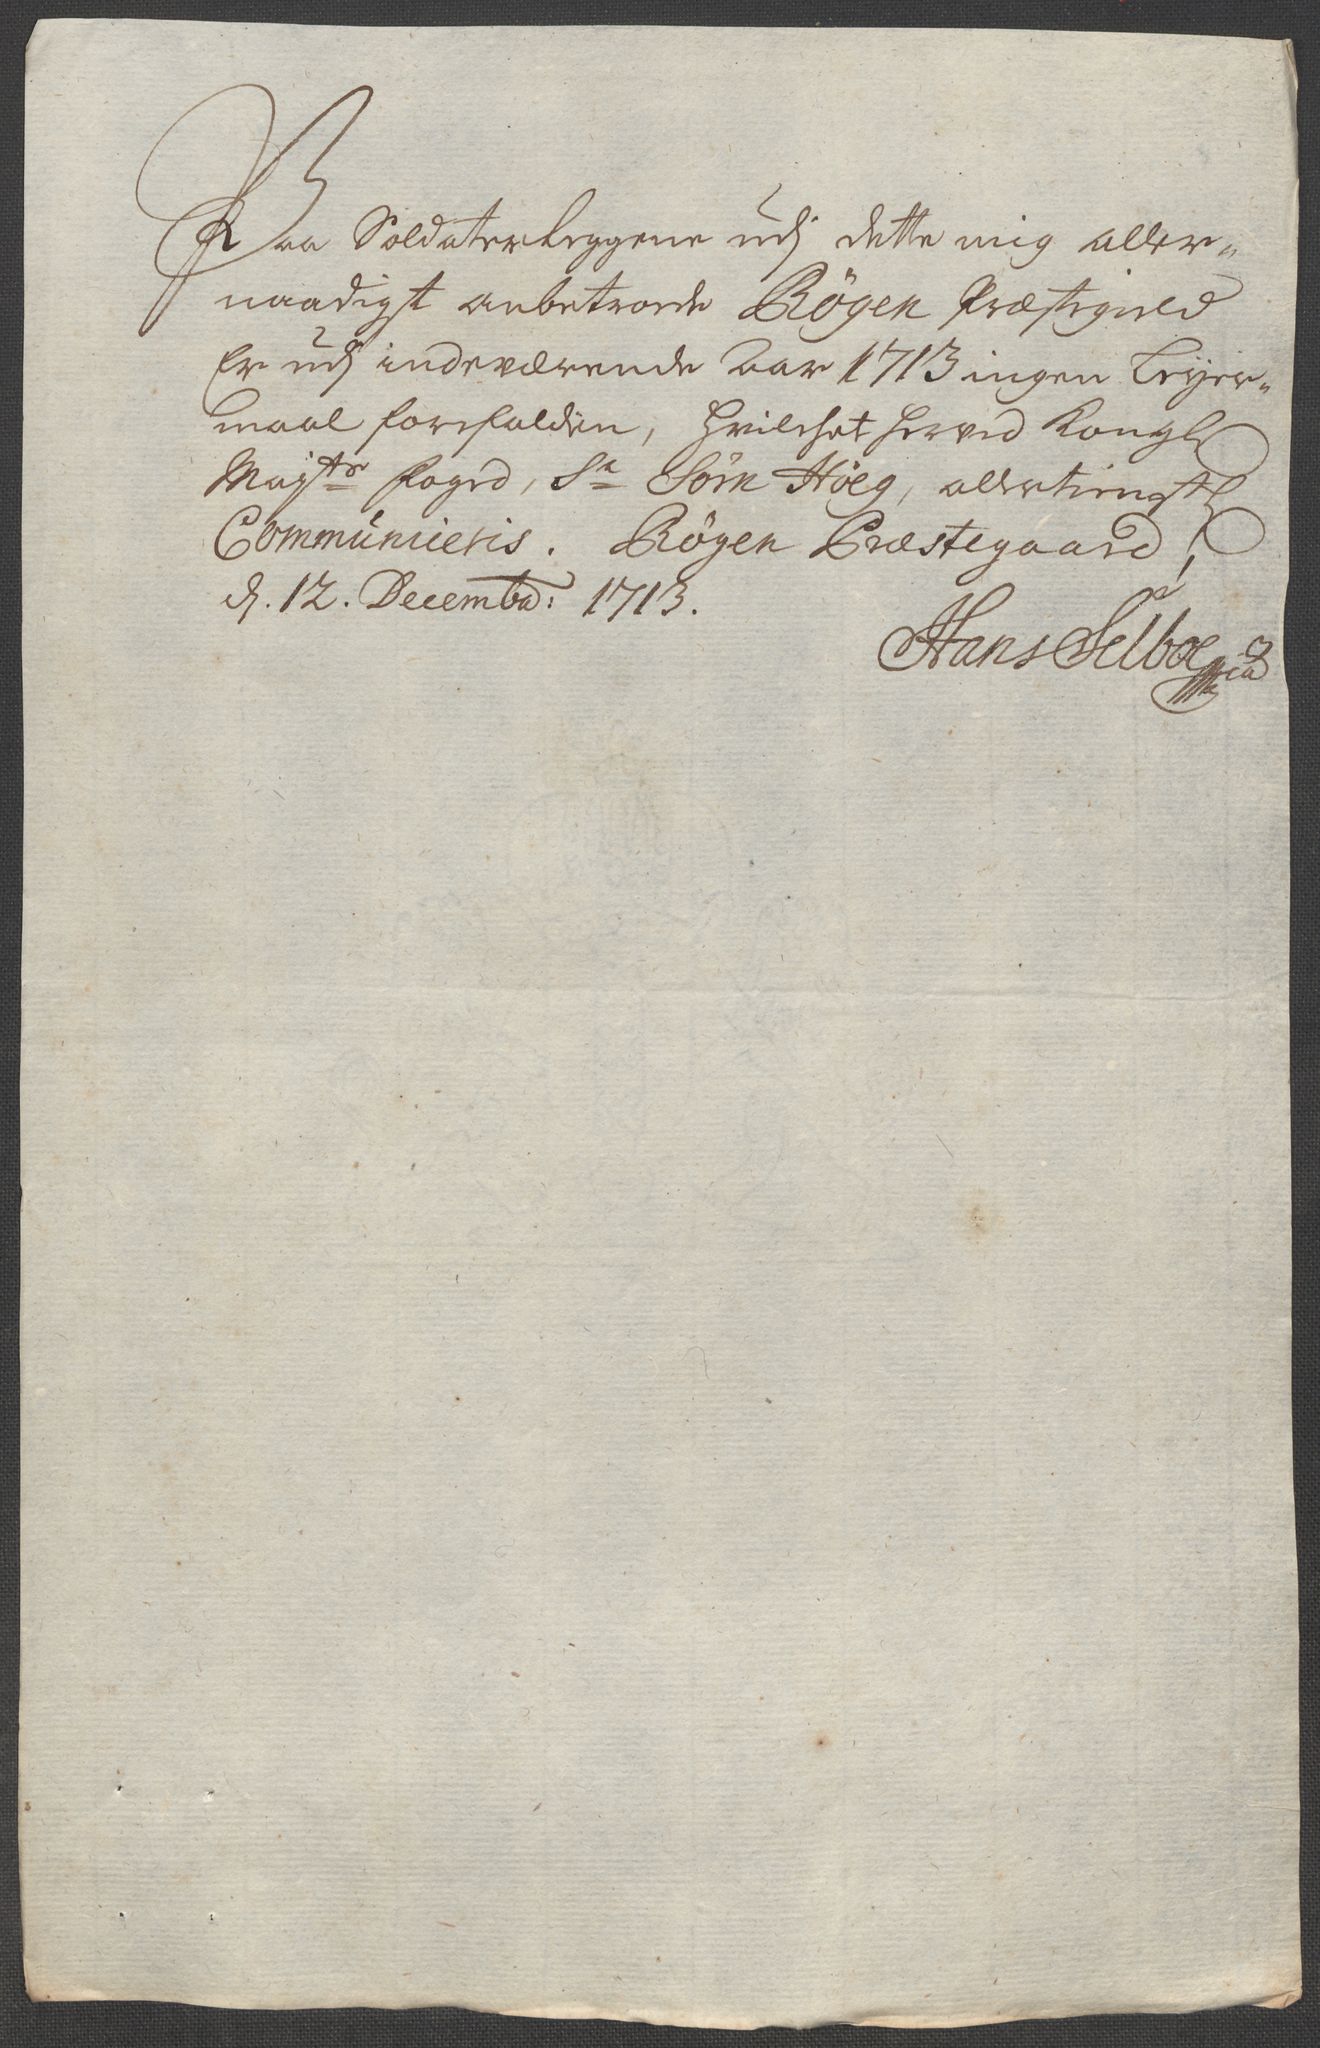 Paa Soldaterleggene udj dette mig aller-
naadigst anbetroede Røgen Præstegield
er udj indeværende Aar 1713 ingen Leyer-
maal forefalden, hvilchet herved Kongl
Mayts Foged, Sr Sørn Høeg, allertienstl
Communiceris. Røgen Præstegaard,
d. 12. Decembr: 1713.
Hans Selboe